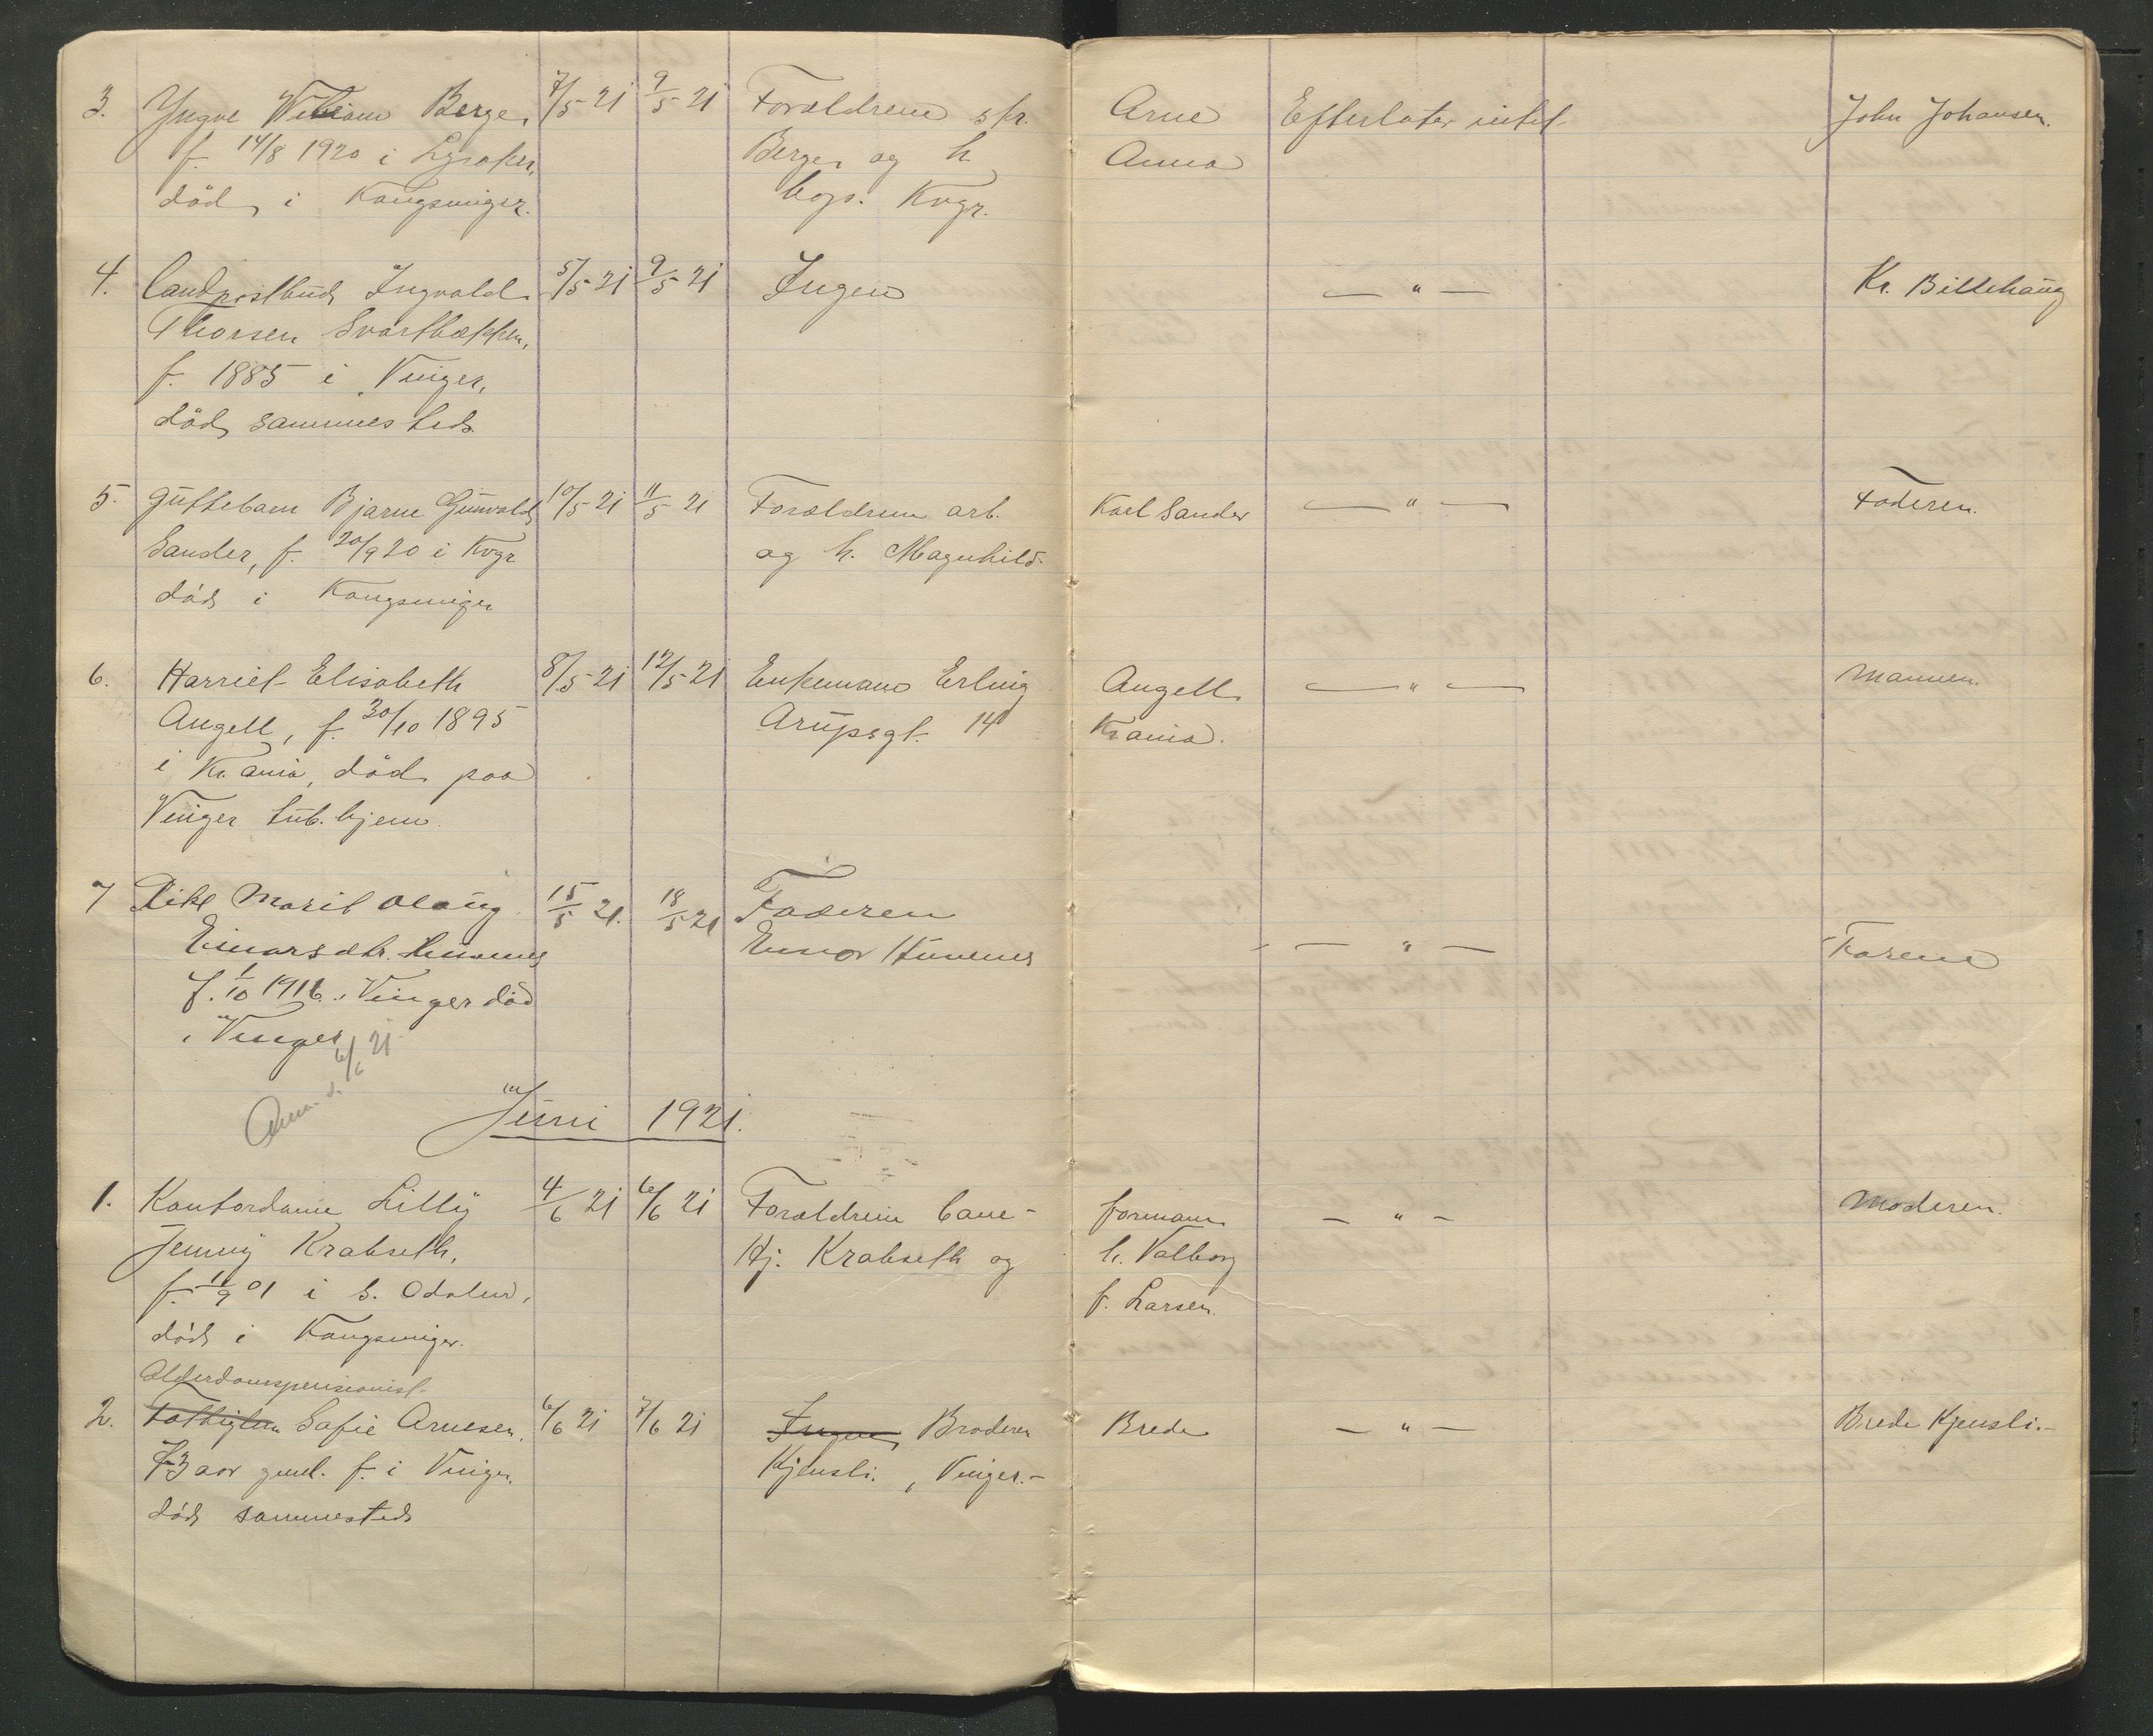 3. Yngve William Berger 7/5 21 9/5 21 Forældrene skr. Arne Efterlater intet. John Johansen.
f. 14/8 1920 i Lysaker, Berger og h. Anna
död i Kongsvinger. bops. Kvgr.
4. Landpostbud Ingvald 5/5 21 9/5 21 Ingen — " — Kr. Billehaug
Thorsen Svartbækken,
f. 1885 i Vinger,
död sammesteds.
5. Guttebarn Bjarne Gunvald 10/5 21 11/5 21 Forældrene arb. Karl Sander — " — Faderen.
Sander, f. 20/9 20 i Kvgr og h. Magnhild.
död i Kongsvinger
6. Harriet Elisabeth 8/5 21 12/5 21 Enkemand Erling Angell — " — Manden.
Angell, f. 30/10 1895 Arupsgt. 14 Kr.ania.
i Kr.ania, död paa
Vinger tub. hjem.
7 Pike Marit Olaug 15/5 21. 18/5 21 Faderen
Einarsdtr. Hunnes Einar Hunnes — " — Faren
f. 1/10 1916 i Vinger död
i Vinger
Anm. d. 6/6 21
Juni 1921.
1. Kontordame Lilly 4/6 21 6/6 21 Forældrene bane- formann — " — Moderen.
Jenny Krabseth, Hj. Krabseth og h. Valborg
f. 11/9 01 i S. Odalen, f. Larsen.
död i Kongsvinger.
Alderdomspensionist
2. Fattiglem Sofie Arnesen, 6/6 21 7/6 21 Ingen Broderen Brede — " — Brede Kjensli.-
73 aar gml. f. i Vinger. Kjensli, Vinger.-
död sammesteds